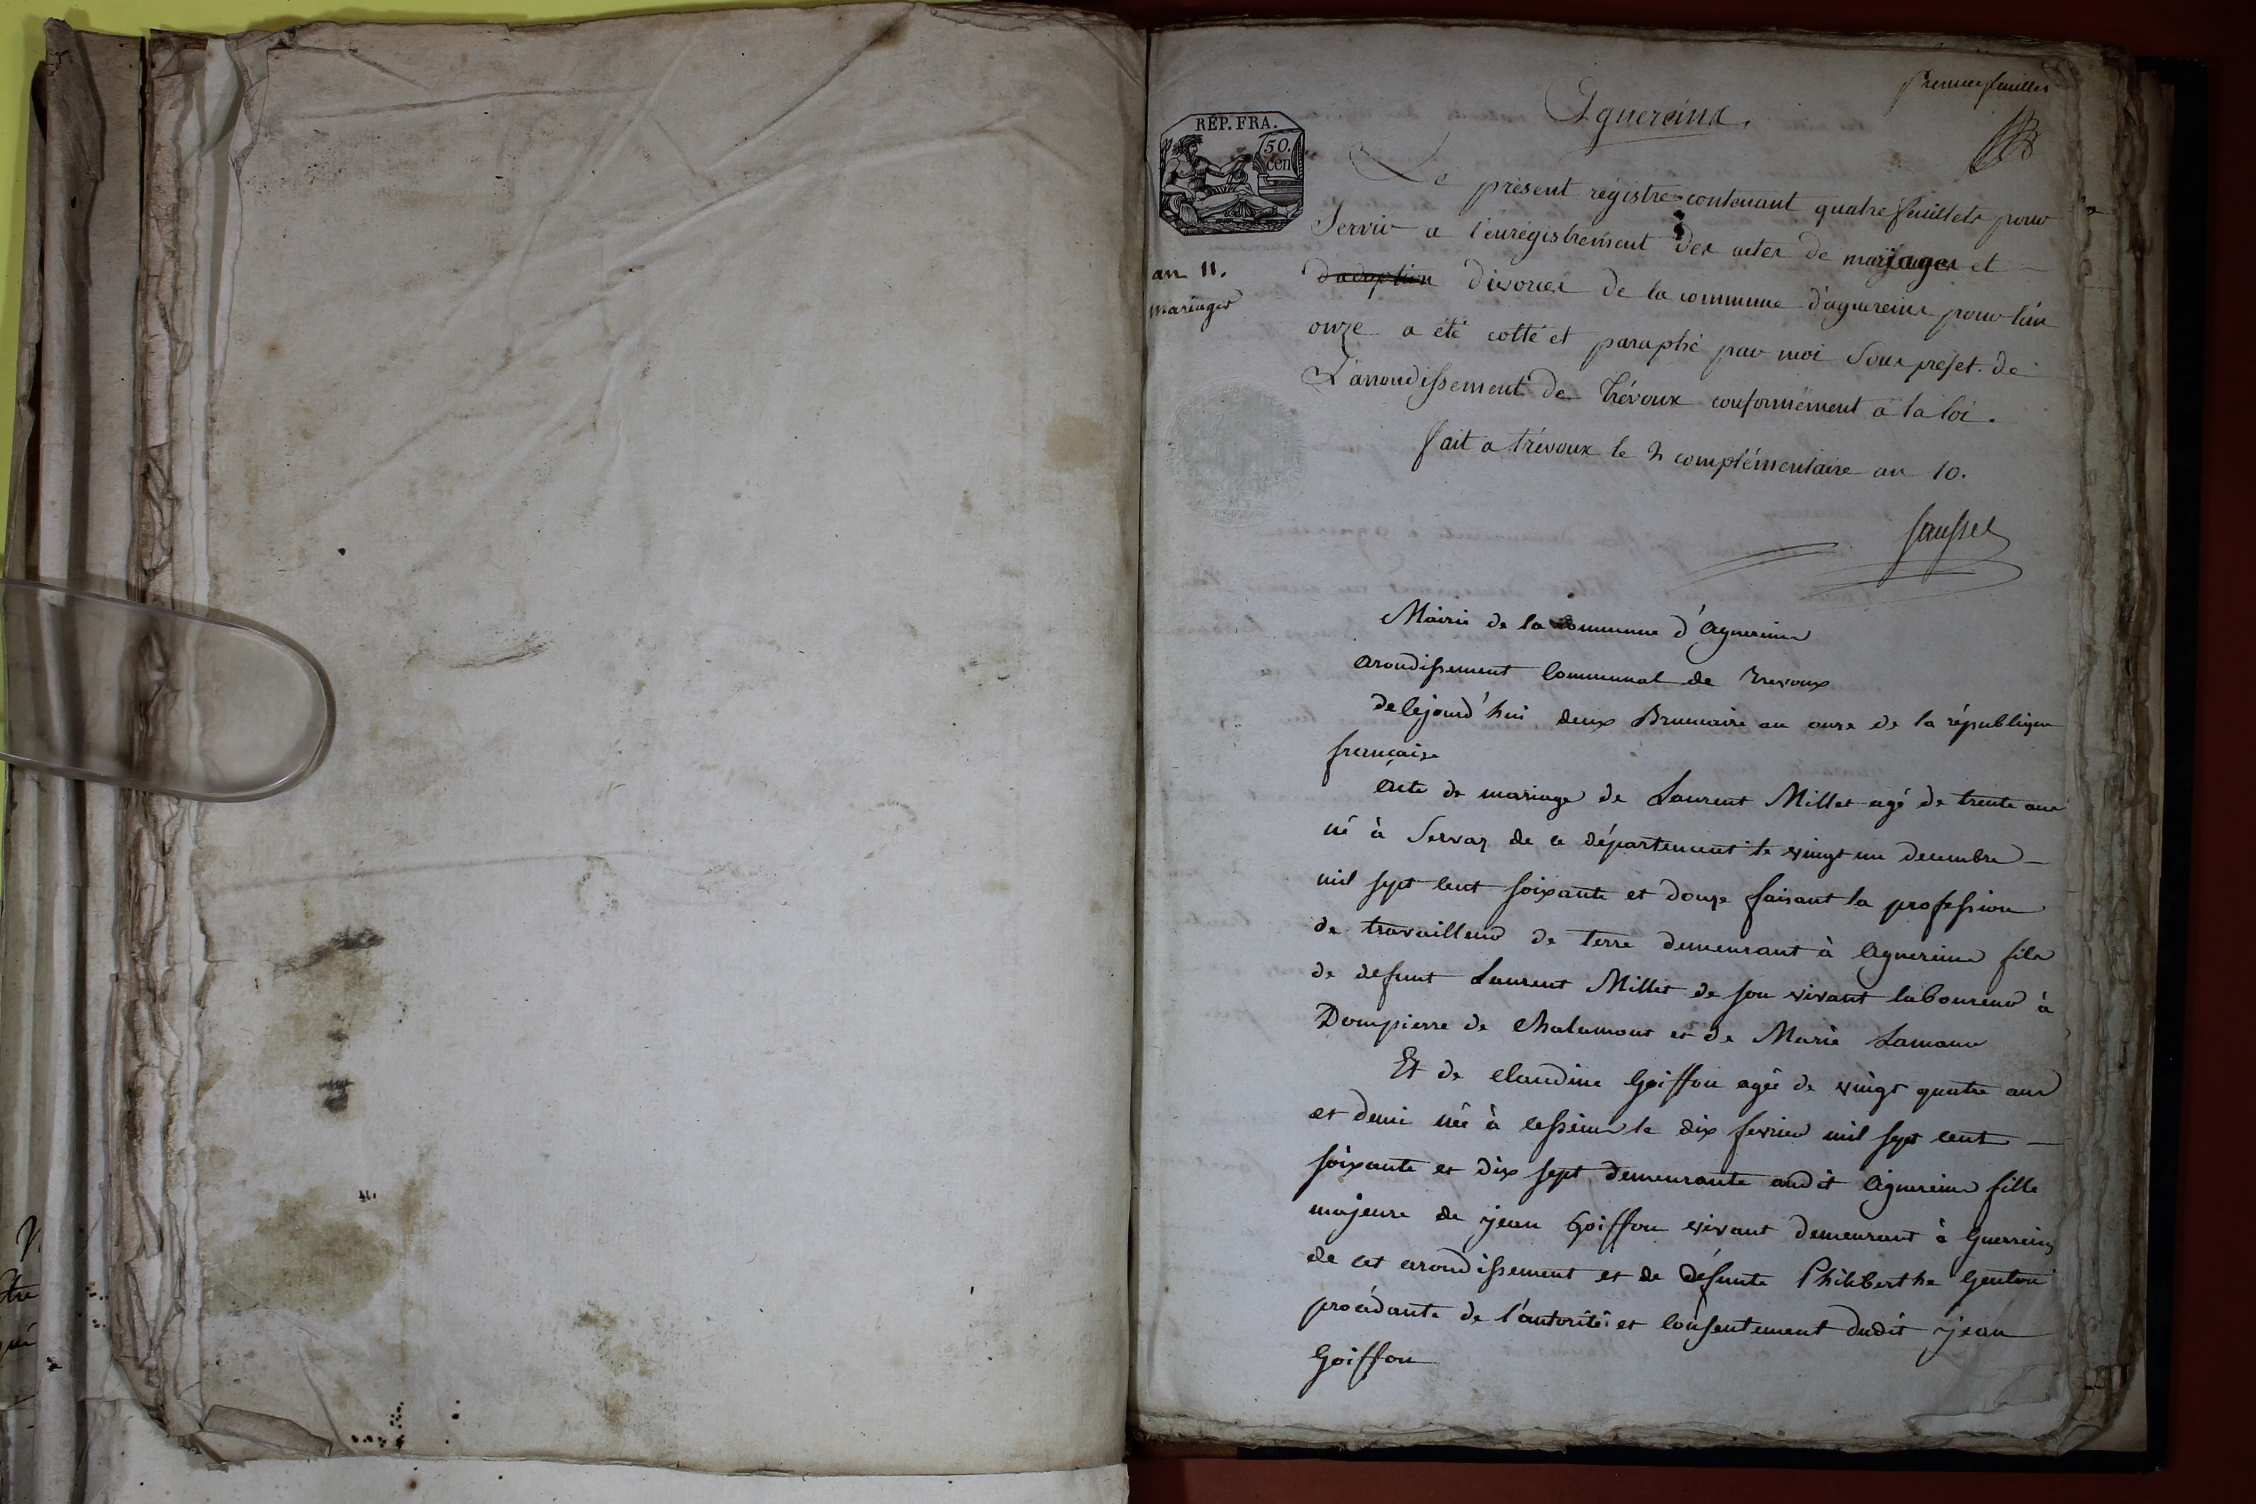 premier feuillet
Aguereins.
REP. FRA.
50.
cen
Le présent régistre contenant quatre feuillets pour
Servir a l'enrégistrement des actes de mariages et
an 11.
mariages
d'adoption divorces de la commune d'aguereins pour l'an
onze a été cotté et paraphé par moi Sous prefet de
L'arrondissement de Trévoux conformément a la loi.
fait a trévoux le 2 complémentaire an 10.
Mairie de la Commune d'Aguereins
arondissement Communal de Trevoux
deCejourd'hui deux Brumaire an onze de la république
française
Acte de mariage de Laurent Millet agé de trente ans
né à Servas de ce département le vingt un decembre
mil sept Cent soixante et douze faisant la profession
de travailleur de terre demeurant à Aguereins fils
de defunt Laurent Millet de son vivant laboureur à
Dompierre de Chalamont et de Marie
Et de Claudine Goiffon agée de vingt quatre ans
et demi née à Cesseins le dix fevrier mil sept cent
soixante et dix sept demeurante audit Aguereins fille
majeure de jean Goiffon vivant demeurant à Guerreins
de cet arondissement et de défunte Philiberthe Genton
procédante de l'autorité et Consentement dudit jean
Goiffon